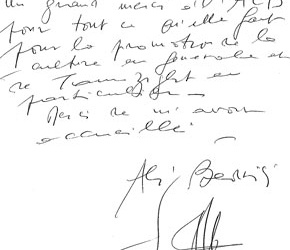 Un grand merci à
pour tout ce qu'elle fait
pour la promotion de la
culture en générale et
de Tamazight en
particulier
Merci de m'avoir
accueilli